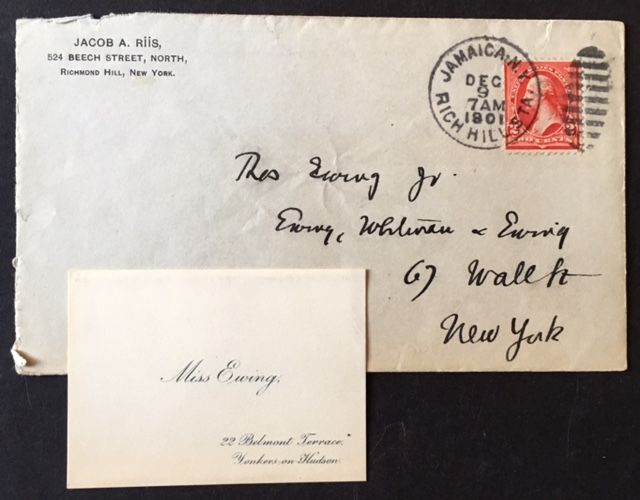 JACOB A. RIIS,
524 BEECH STREET, NORTH,
RICHMOND HILL, NEW YORK.
JAMAICA, N.Y.
DEC
9
7AM
1901
RICH HILL STA.
TWO CENTS
Thos Ewing Jr.
Ewing, Whitman & Ewing
67 Wall St
New York
Miss Ewing.
22 Belmont Terrace,
Yonkers-on-Hudson.